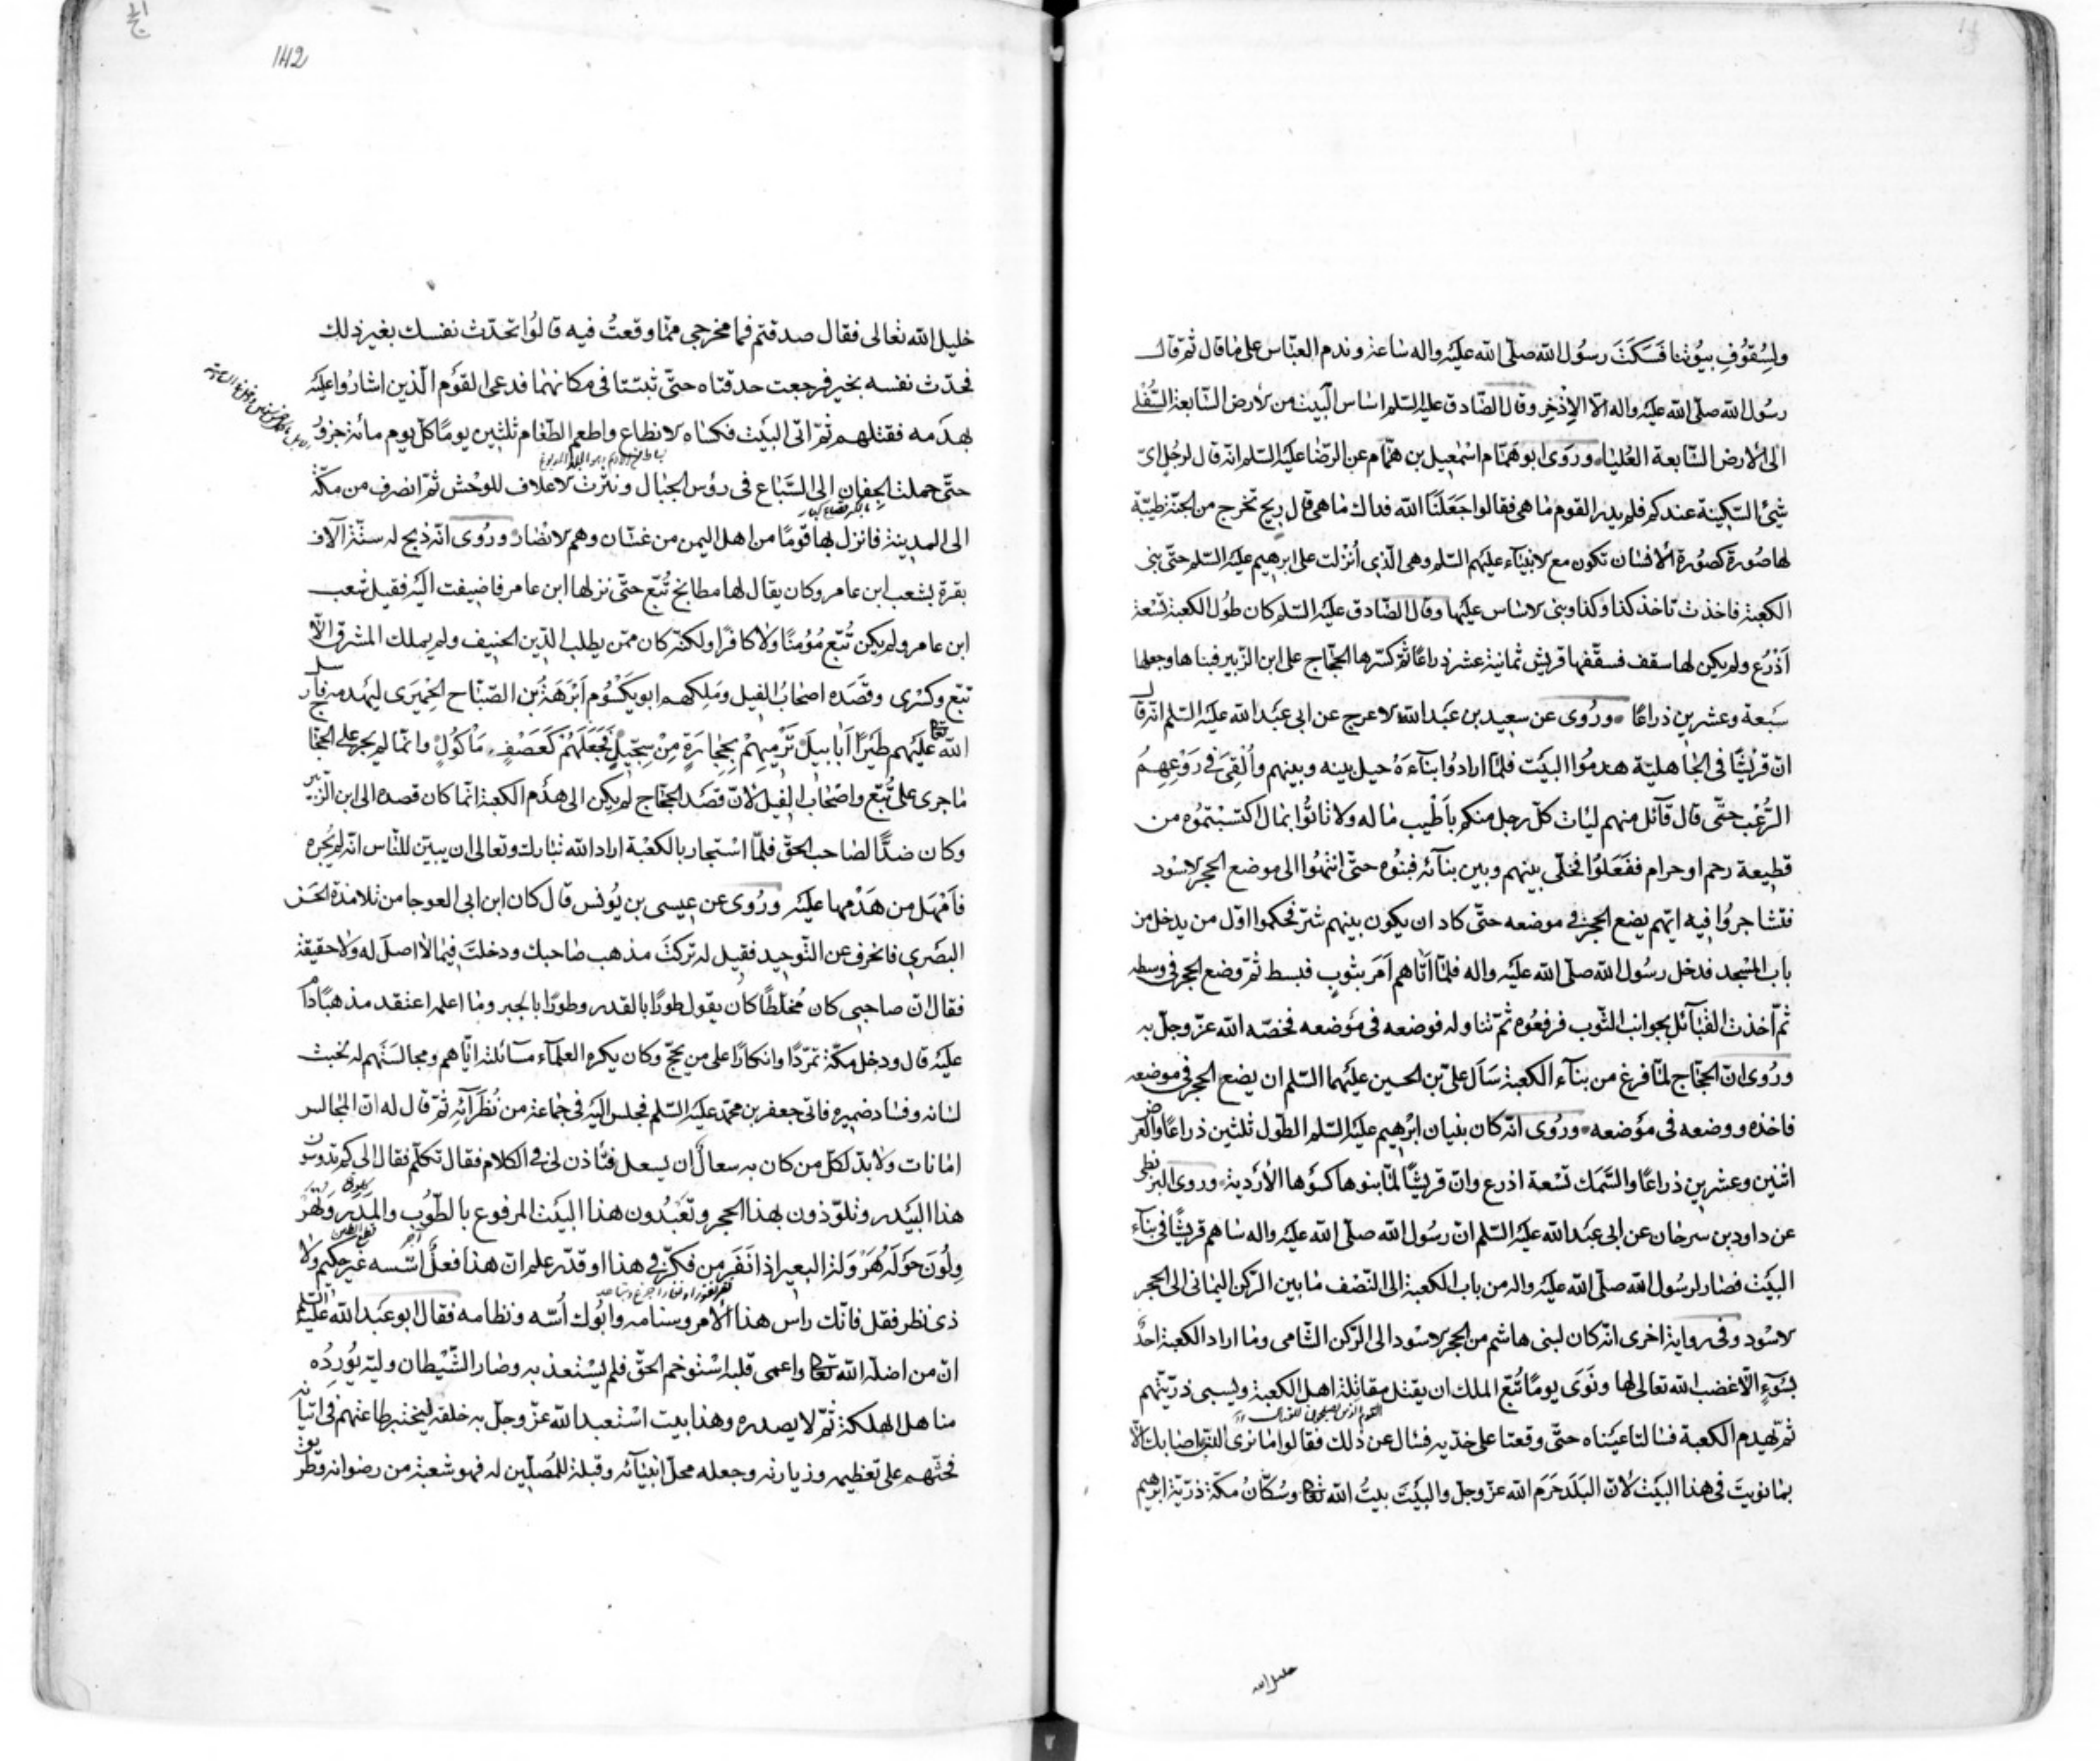 ولسقوف بيوتنا فسكت رسول الله صلّى الله عليه واله ساعة وندم العبّاس على ما قال ثمّ قال
رسول الله صلّى الله عليه واله الّا الاذخر وقال الصّادق عليه السّلم اساس البيت من الارض السّابعة السّفلى
الى الارض السّابعة العليا وروى ابو همّام اسمعيل بن همّام عن الرّضا عليه السّلم انّه قال لرجل اىّ
شئ السّكينة عندكم فلم يدر القوم ما هى فقالوا جعلنا الله فداك ما هى قال ريح تخرج من الجنّة طيّبة
لها صورة كصورة الانسان تكون مع الانبياء عليهم السّلم وهى الّذى أنزلت على ابرهيم عليه السّلم حتّى بنى
الكعبة فاخذت تاخذ كذا وكذا وبنى الاساس عليها وقال الصّادق عليه السّلم كان طول الكعبة تسعة
أذرع ولم يكن لها سقف فسقّفها قريش ثمانية عشر ذراعًا ثمّ كسّرها الحجّاج على ابن الزّبير فبناها وجعلها
سبعة وعشرين ذراعًا وروى عن سعيد بن عبد الله الاعرج عن ابى عبد الله عليه السّلم انّه قال
انّ قريشًا فى الجاهليّة هدموا البيت فلمّا ارادوا بناءه حيل بينه وبينهم وألقى فى روعهم
الرّعب حتّى قال قآئل منهم ليات كلّ رجل منكم بأطيب ماله ولا تاتوا بمال اكتسبتموه من
قطيعة رحم او حرام ففعلوا فخلّى بينهم وبين بنآئه فبنوه حتّى انتهوا الى موضع الحجر الاسود
فتشاجروا فيه ايّهم يضع الحجر فى موضعه حتّى كاد ان يكون بينهم شرّ فحكموا اوّل من يدخل من
باب المسجد فدخل رسول الله صلّى الله عليه واله فلمّا أتاهم أمر بثوب فبسط ثمّ وضع الحجر فى وسطه
ثمّ أخذت القبآئل بجوانب الثّوب فرفعوه ثمّ تناوله فوضعه فى موضعه فخصّه الله عزّ وجلّ به
وروى انّ الحجّاج لمّا فرغ من بنآء الكعبة سأل علىّ بن الحسين عليهما السّلم ان يضع الحجر فى موضعه
فاخذه ووضعه فى موضعه وروى انّه كان بنيان ابرهيم عليه السّلم الطّول ثلثين ذراعًا والعرض
اثنين وعشرين ذراعًا والسّمك تسعة اذرع وانّ قريشًا لمّا بنوها كسوها الأردية وروى البزنطى
عن داود بن سرحان عن ابى عبد الله عليه السّلم انّ رسول الله صلّى الله عليه واله ساهم قريشًا فى بنآء
البيت فصار لرسول الله صلّى الله عليه واله من باب الكعبة الى النّصف ما بين الرّكن اليمانى الى الحجر
الاسود وفى رواية اخرى انّه كان لبنى هاشم من الحجر الاسود الى الرّكن الشّامى وما اراد الكعبة احد
بسوء الّا غضب الله تعالى لها ونوى يومًا تبّع الملك ان يقتل مقاتلة اهل الكعبة ويسبى ذرّيّتهم
ثمّ يهدم الكعبة فسالتا عيناه حتّى وقعتا على خدّيه فسال عن ذلك فقالوا ما نرى الّذى اصابك الّا
بما نويت فى هذا البيت لانّ البلد حرم الله عزّ وجلّ والبيت بيت الله تعالى وسكّان مكّة ذرّيّة ابرهيم
خليل الله
142
خليل الله تعالى فقال صدقتم فما مخرجى ممّا وقعت فيه قالوا تحدّث نفسك بغير ذلك
فحدّث نفسه بخير فرجعت حدقتاه حتّى ثبتتا فى مكانهما فدعى القوم الّذين اشاروا عليه
بهدمه فقتلهم ثمّ اتى البيت فكساه الانطاع واطعم الطّعام ثلثين يومًا كلّ يوم مائة جزور
حتّى حملت الجفان الى السّباع فى رؤس الجبال ونثرت الاعلاف للوحش ثمّ انصرف من مكّة
الى المدينة فانزل بها قومًا من اهل اليمن من غسّان وهم الانصار وروى انّه ذبح له ستّة آلاف
بقرة بشعب ابن عامر وكان يقال لها مطابخ تبّع حتّى نزلها ابن عامر فاضيفت اليه فقيل شعب
ابن عامر ولم يكن تبّع مؤمنًا ولا كافرًا ولكنّه كان ممّن يطلب الدّين الحنيف ولم يملك المشرق الّا
تبّع وكسرى وقصده اصحاب الفيل وملكهم ابو يكسوم أبرهة بن الصّبّاح الحميرى ليهدمه فارسل
الله تعالى عليهم طيرًا أبابيل ترميهم بحجارة من سجّيل فجعلهم كعصف مأكول وانّما لم يجر على الحجّاج
ما جرى على تبّع واصحاب الفيل لانّ قصد الحجّاج لم يكن الى هدم الكعبة انّما كان قصده الى ابن الزّبير
وكان ضدًّا لصاحب الحقّ فلمّا استجار بالكعبة اراد الله تبارك وتعالى ان يبيّن للنّاس انّه لم يجره
فأمهل من هدمها عليه وروى عن عيسى بن يونس قال كان ابن ابى العوجا من تلامذة الحسن
البصرى فانحرف عن التّوحيد فقيل له تركت مذهب صاحبك ودخلت فيما لا اصل له ولا حقيقة
فقال انّ صاحبى كان مخلّطًا كان يقول طورًا بالقدر وطورًا بالجبر وما اعلمه اعتقد مذهبًا دام
عليه قال ودخل مكّة تمرّدًا وانكارًا على من يحجّ وكان يكره العلمآء مسآئلته ايّاهم ومجالستهم له لخبث
لسانه وفساد ضميره فاتى جعفر بن محمّد عليه السّلم فجلس اليه فى جماعة من نظرآئه ثمّ قال له انّ المجالس
امانات ولا بدّ لكلّ من كان به سعال ان يسعل فتأذن لى فى الكلام فقال تكلّم فقال الى كم تدوسون
هذا البيدر وتلوذون بهذا الحجر وتعبدون هذا البيت المرفوع بالطّوب والمدر وتهر
ولون حوله هرولة البعير اذا نفر من فكّر فى هذا او قدّر علم ان هذا فعل اسّسه غير حكيم ولا
ذى نظر فقل فانّك راس هذا الامر وسنامه وابوك أسّه ونظامه فقال ابو عبد الله عليه السّلم
انّ من اضلّه الله تعالى واعمى قلبه استوخم الحقّ فلم يستعذ به وصار الشّيطان وليّه يورده
مناهل الهلكة ثمّ لا يصدره وهذا بيت استعبد الله عزّ وجلّ به خلقه ليختبر طاعتهم فى اتيانه
فحثّهم على تعظيمه وزيارته وجعله محلّ انبيآئه وقبلة للمصلّين له فهو شعبة من رضوانه وطريق